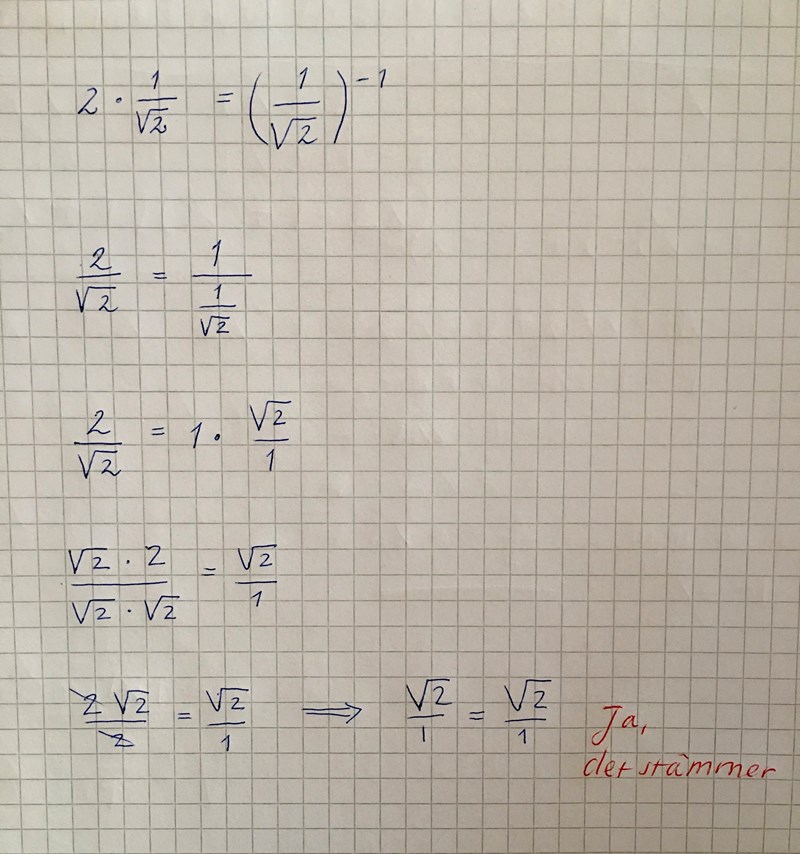 2 · 1/√2 = (1/√2)^-1
2/√2 = 1/(1/√2)
2/√2 = 1 · √2/1
(√2 · 2)/(√2 · √2) = √2/1
2√2/2 = √2/1 ⟹ √2/1 = √2/1 Ja,
det stämmer